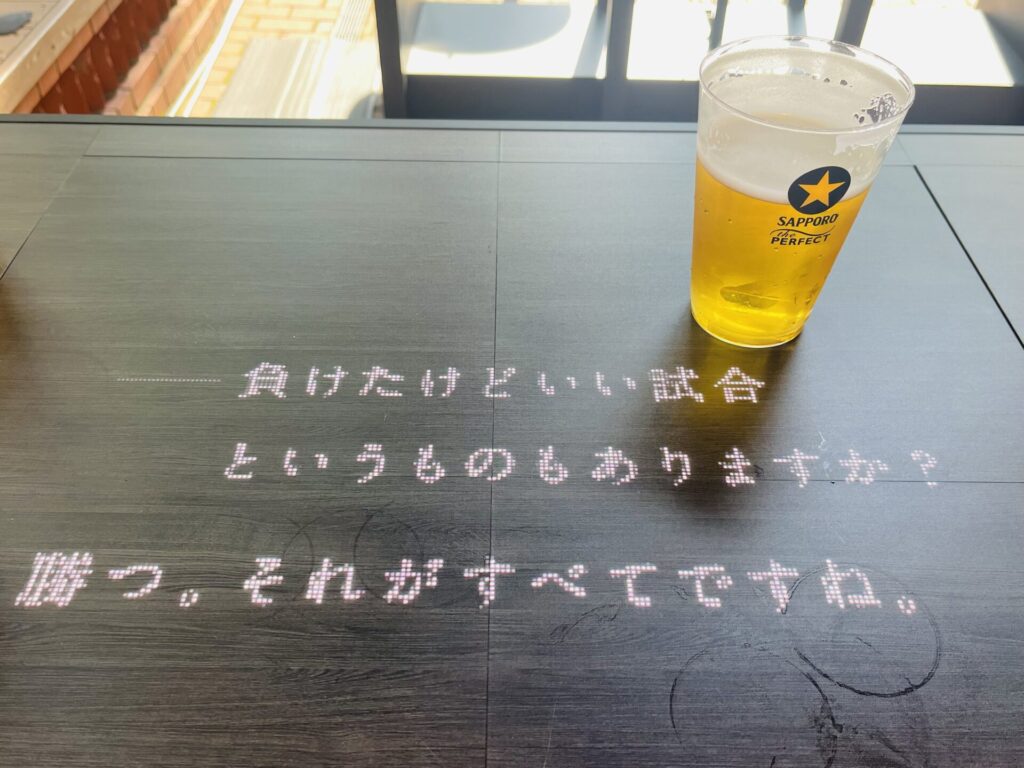 SAPPORO
the
PERFECT
負けたけどいい試合
というものもありますか？
勝つ。それがすべてですね。